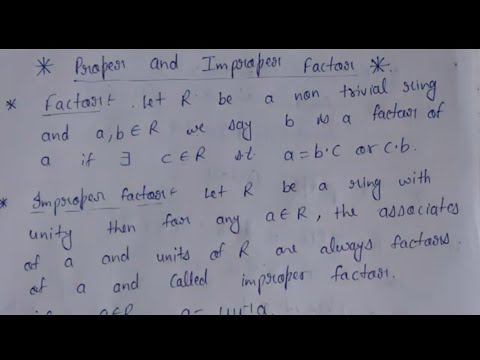 * Proper and Improper Factor *
* Factor :- Let R be a non trivial ring
and a,b ∈ R we say b is a factor of
a if ∃ c ∈ R st. a = b·c or c·b.
* Improper factor :- Let R be a ring with
unity then for any a ∈ R, the associates
of a and units of R are always factors
of a and called improper factor.
a ∈ R a = uu⁻¹a